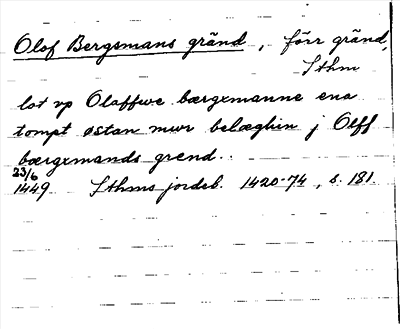 Olof Bergsmans gränd, förr gränd,
Sthm
lot vp Olaffwe bærgxmanne ena
tompt østan mwr belæghin j Olff
bærgxmands grend.
23/6
1449 Sthms jordeb. 1420-74, s. 181.